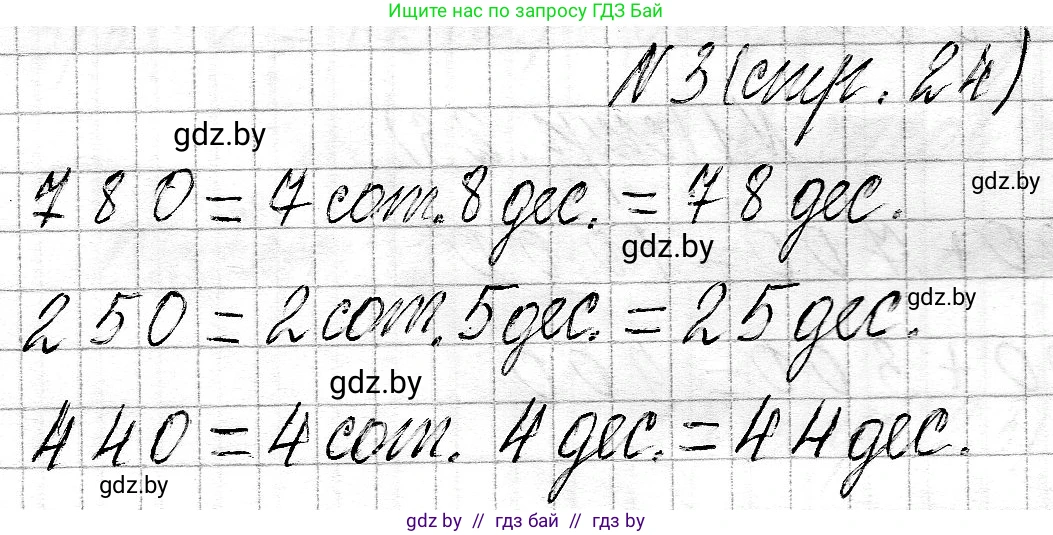 Ищите нас по запросу ГДЗ Бай
N 3 (стр. 24)
gdz.by
780 = 7 сот. 8 дес. = 78 дес.
gdz.by
gdz.by
250 = 2 сот. 5 дес. = 25 дес.
gdz.by
gdz.by
440 = 4 сот. 4 дес. = 44 дес.
gdz.by
gdz by // гдз бай // гдз by